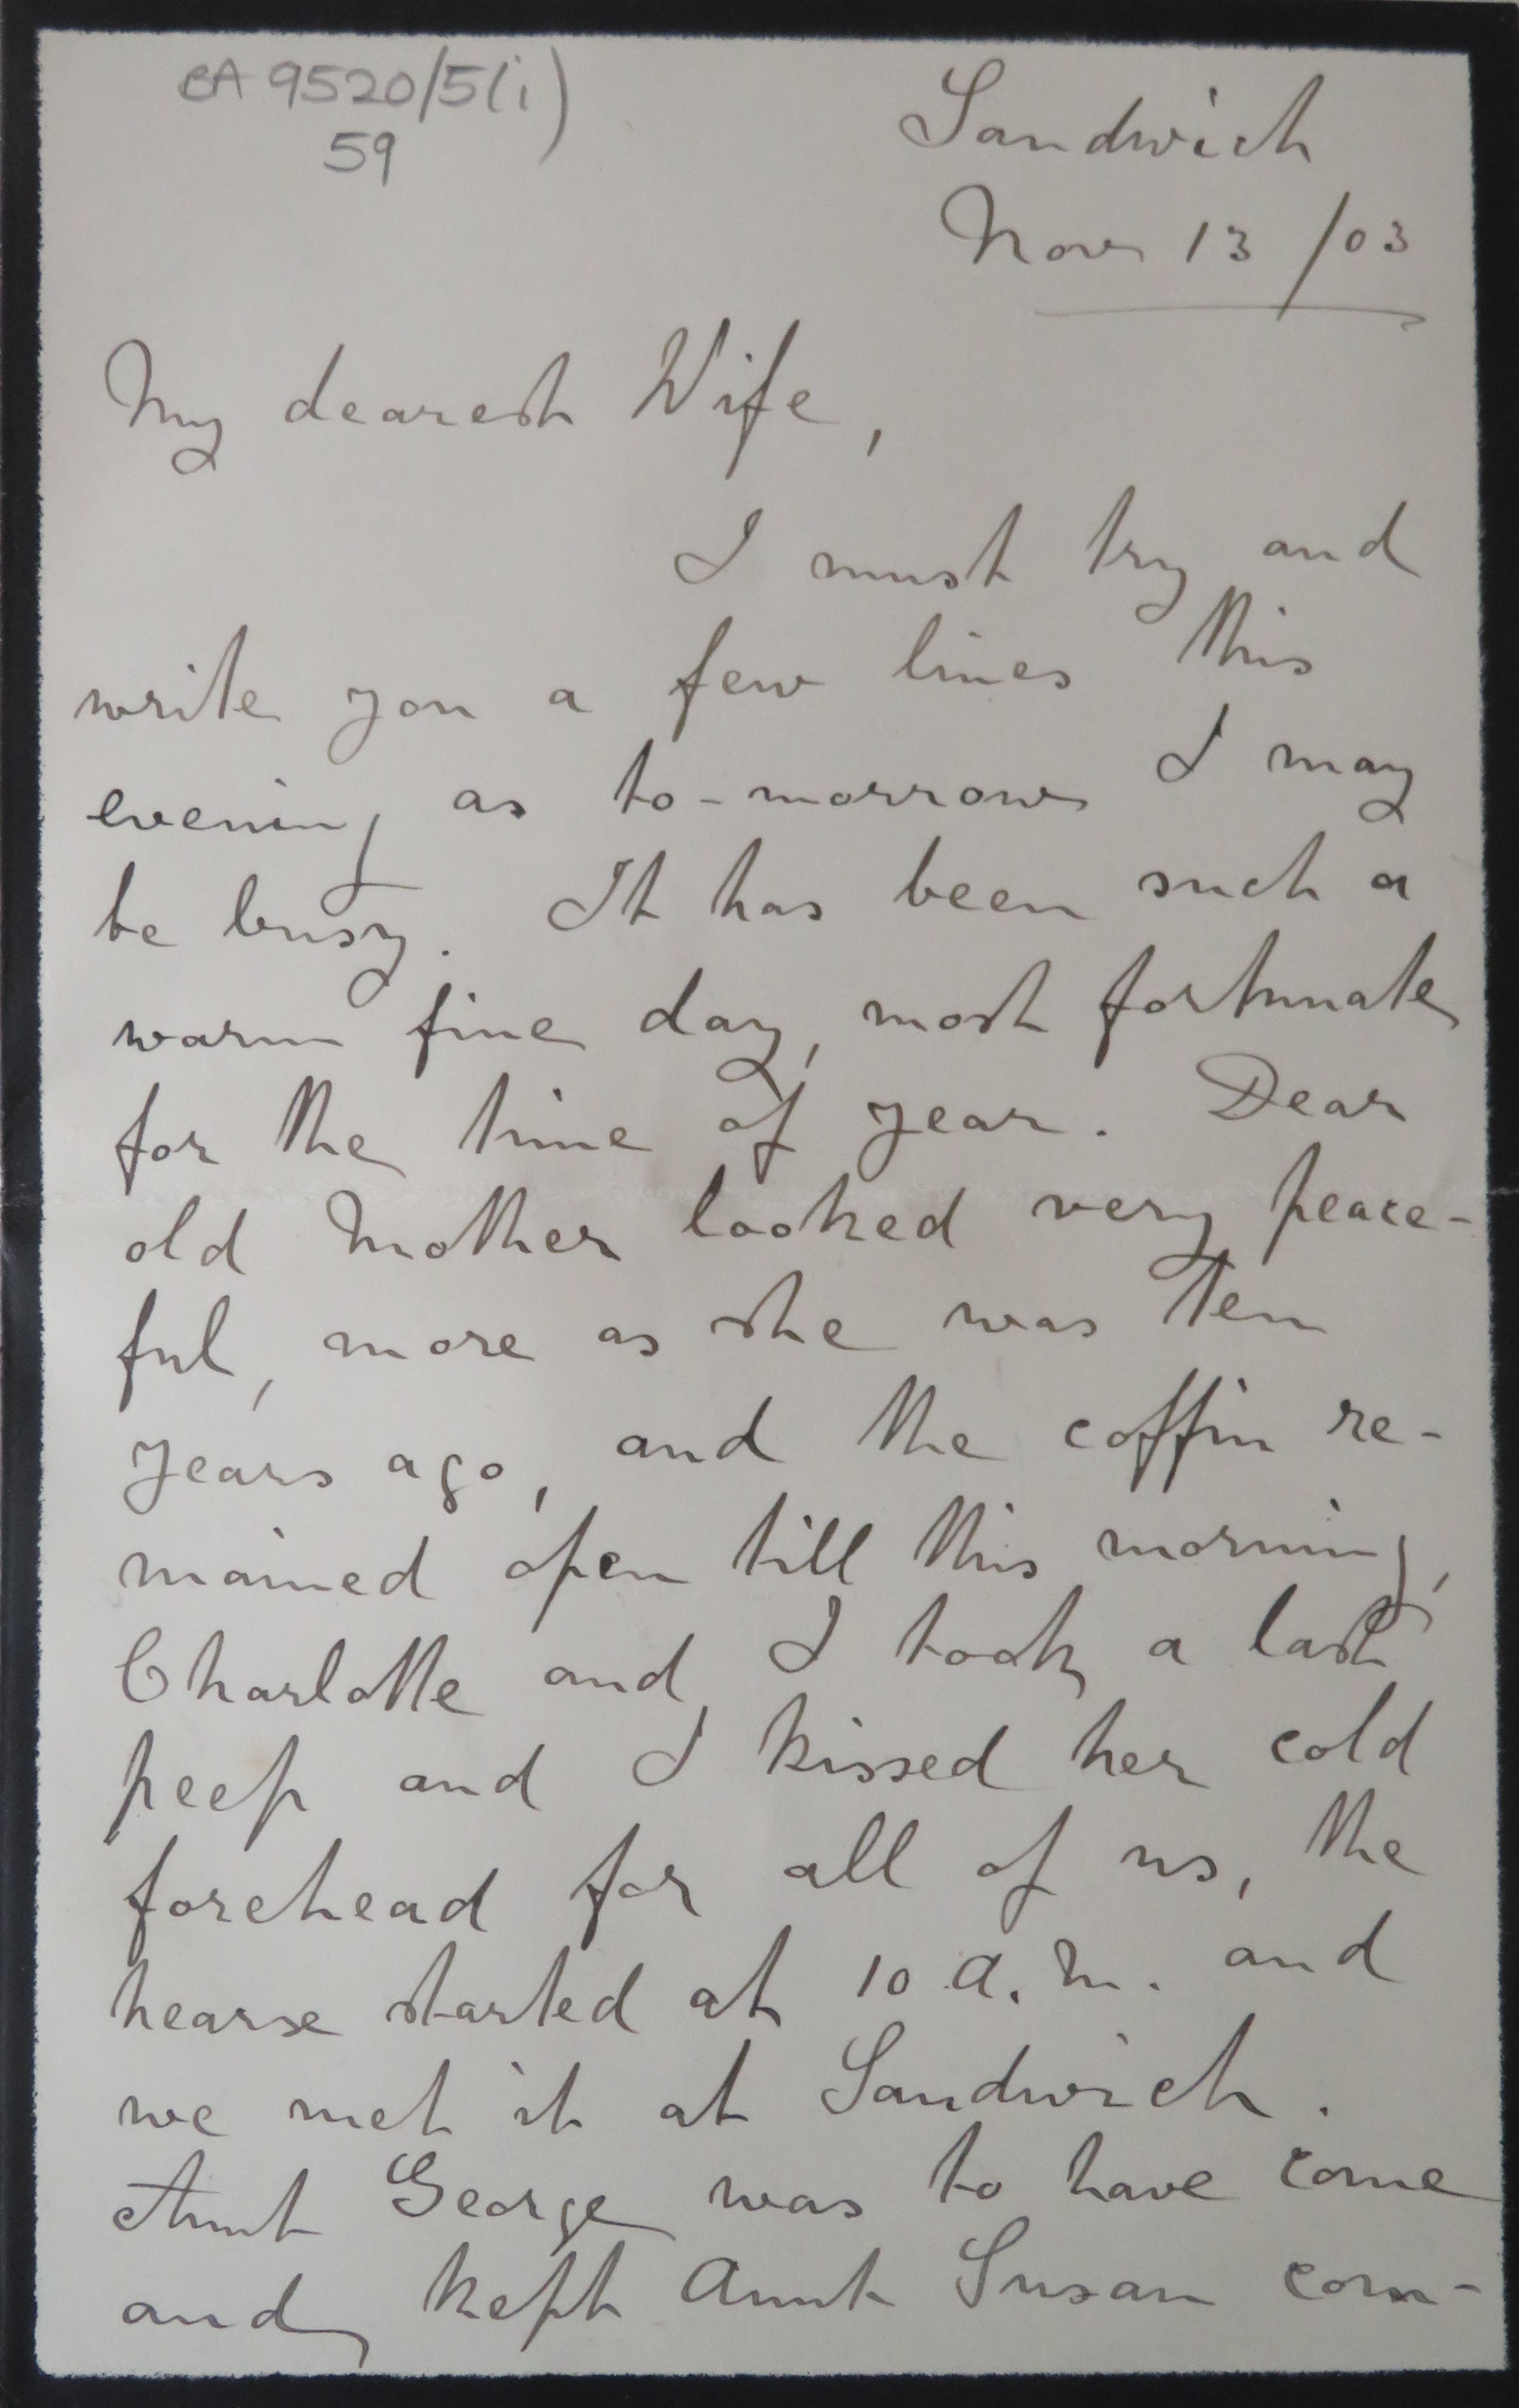 BA 9520/5(i)
59
Sandwich
Nov 13 /03
My dearest Wife,
I must try and
write you a few lines this
evening as to-morrow I may
be busy. It has been such a
warm fine day, most fortunate
for the time of year. Dear
old Mother looked very peace-
ful, more as she was ten
years ago, and the coffin re-
mained open till this morning,
Charlotte and I took a last
peep and I kissed her cold
forehead for all of us, the
hearse started at 10 a.m. and
we met it at Sandwich.
Aunt George was to have come
and kept Aunt Susan com-